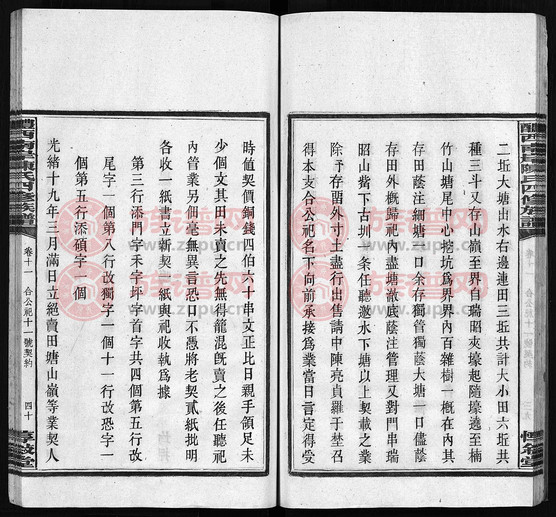 二坵大塘山水右邊連田三坵共計大小田六坵共
種三斗又存山嶺至界自瑞昭夾壕起隨壕遶至楠
竹山塘尾中心挖坑為界界內百雜樹一概在內其
存田蔭注細塘一口余存獨管獨蔭大塘一口儘蔭
存田外概歸祀一盡塘澈底蔭注管理又對門串瑞
昭山峕下古圳一条任聽邀水下塘以上契載之業
除予存畱外寸土盡行出售請中陳亮貞羅于埜召
得本支合公祀名下向前承接為業當日言定得受
時值契價銅錢四伯六十串文正比日親手領足未
少個文其田未賣之先無得籠混既賣之後任聽祀
內管業另佃毫無異言恐口不憑將老契貳紙批明
各收一紙書立新契一紙與祀收執為據
第二行添門字禾字坪字首字共四個第五行改
尾字一個第八行改獨字一個十一行改恐字一
個第五行添碩字一個
光緒十九年三月滿日立絕賣田塘山嶺等業契人
卷十一
合公祀十一號契約
四十
惇敘堂